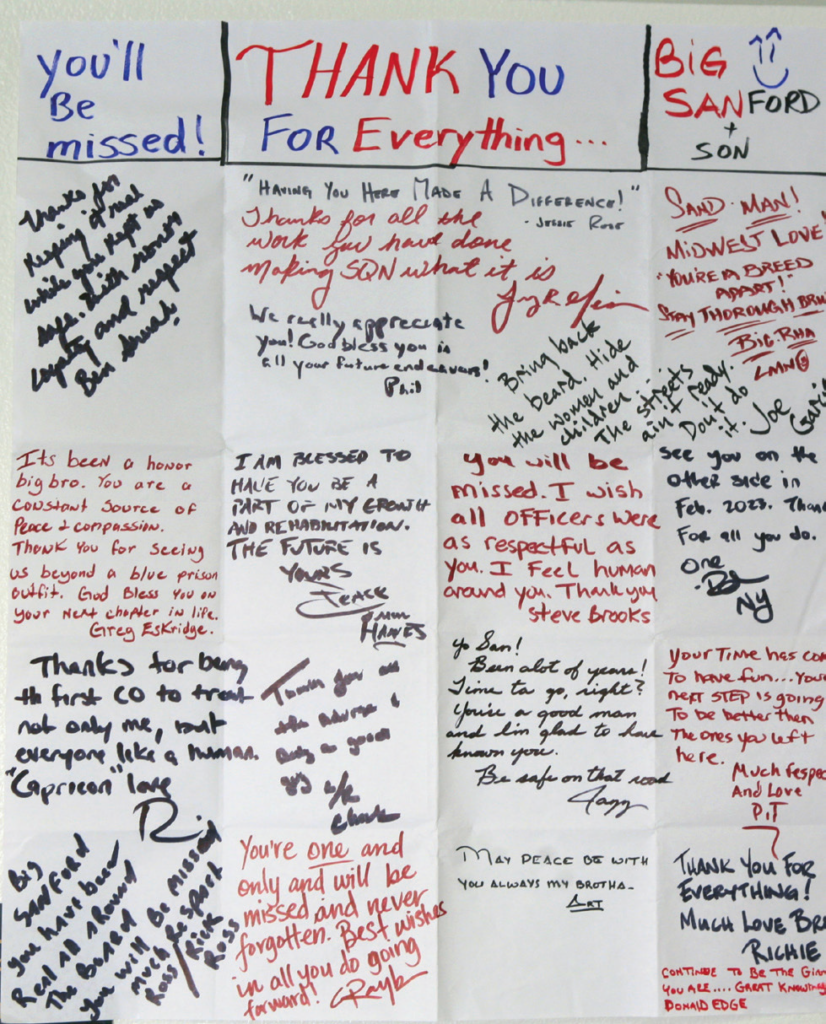 you'll
Be
missed!
THANK YOU
FOR Everything...
BiG
SANFORD
+
SON
Thanks for
keeping it real
while you kept us
safe. With honor
loyalty and respect
Ben
"HAVING YOU HERE MADE A DIFFERENCE!"
- JESSIE ROSE
Thanks for all the
work you have done
making SQN what it is
We really appreciate
you! God bless you is
all your future endeavors!
Phil
Bring back
the beard. Hide
the women and
children...
The streets
ain't ready.
Don't do
it. Joe
SAND MAN!
MIDWEST LOVE!
"YOU'RE A BREED
APART!"
STAY THOROUGH
BIG RHA
LMN
Its been a honor
big bro. You are a
constant source of
Peace & compassion.
Thank You for seeing
us beyond a blue prison
outfit. God Bless You on
your next chapter in life.
Greg Eskridge.
I AM BLESSED TO
HAVE YOU BE A
PART OF MY GROWTH
AND REHABILITATION.
THE FUTURE IS
YOURS
PEACE
HAWES
you will be
missed. I wish
all OFFicers were
as respectful as
you. I Feel human
around you. Thank you
Steve Brooks
see you on the
other side in
Feb. 2023.
For all you do.
One
NY
Thanks for being
th first CO to treat
not only me, but
everyone like a human.
"Capricon" love
R.
Thanks for all
the
being a good
guy
Chuck
Yo San!
Been alot of years!
Time ta go, right?
You're a good man
and I'm glad to have
known you.
Be safe on that road
Your Time has
To have fun...
next STEP is going
To be better then
The ones you left
here.
Much respect
And Love
PIT
Big
SANFORD
you have been
Real all around
The Board
you will Be missed
much respect
Ross/Rick
Ross
You're one and
only and will be
missed and never
forgotten. Best wishes
in all you do going
forward!
MAY PEACE BE WITH
YOU ALWAYS MY BROTHA-
ART
THANK YOU FOR
EVERYTHING!
MUCH LOVE
RICHIE
CONTINUE TO BE THE
YOU ARE.... GREAT
DONALD EDGE